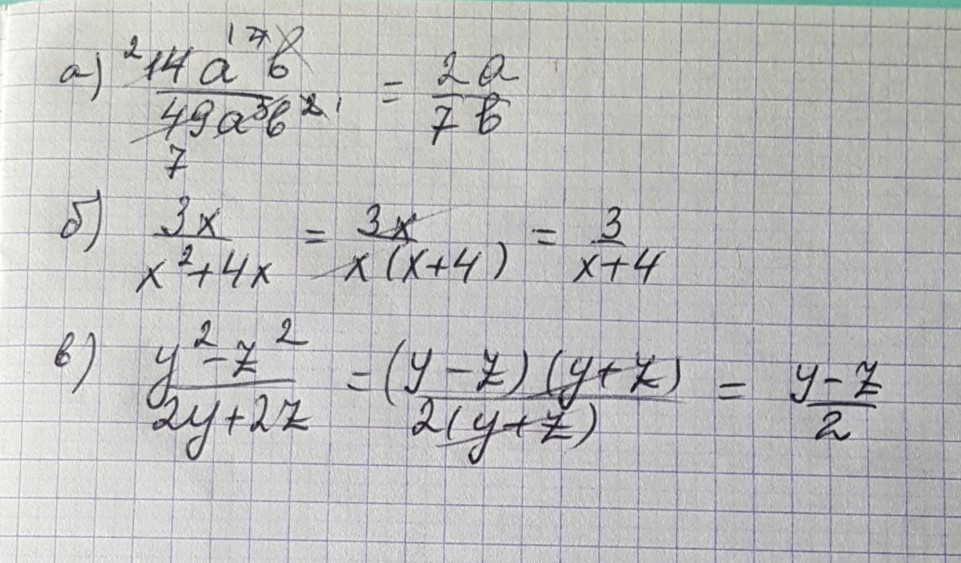 а) 14a⁴b / 49a³b² = 2a / 7b
б) 3x / x²+4x = 3x / x(x+4) = 3 / x+4
в) y²-z² / 2y+2z = (y-z)(y+z) / 2(y+z) = y-z / 2